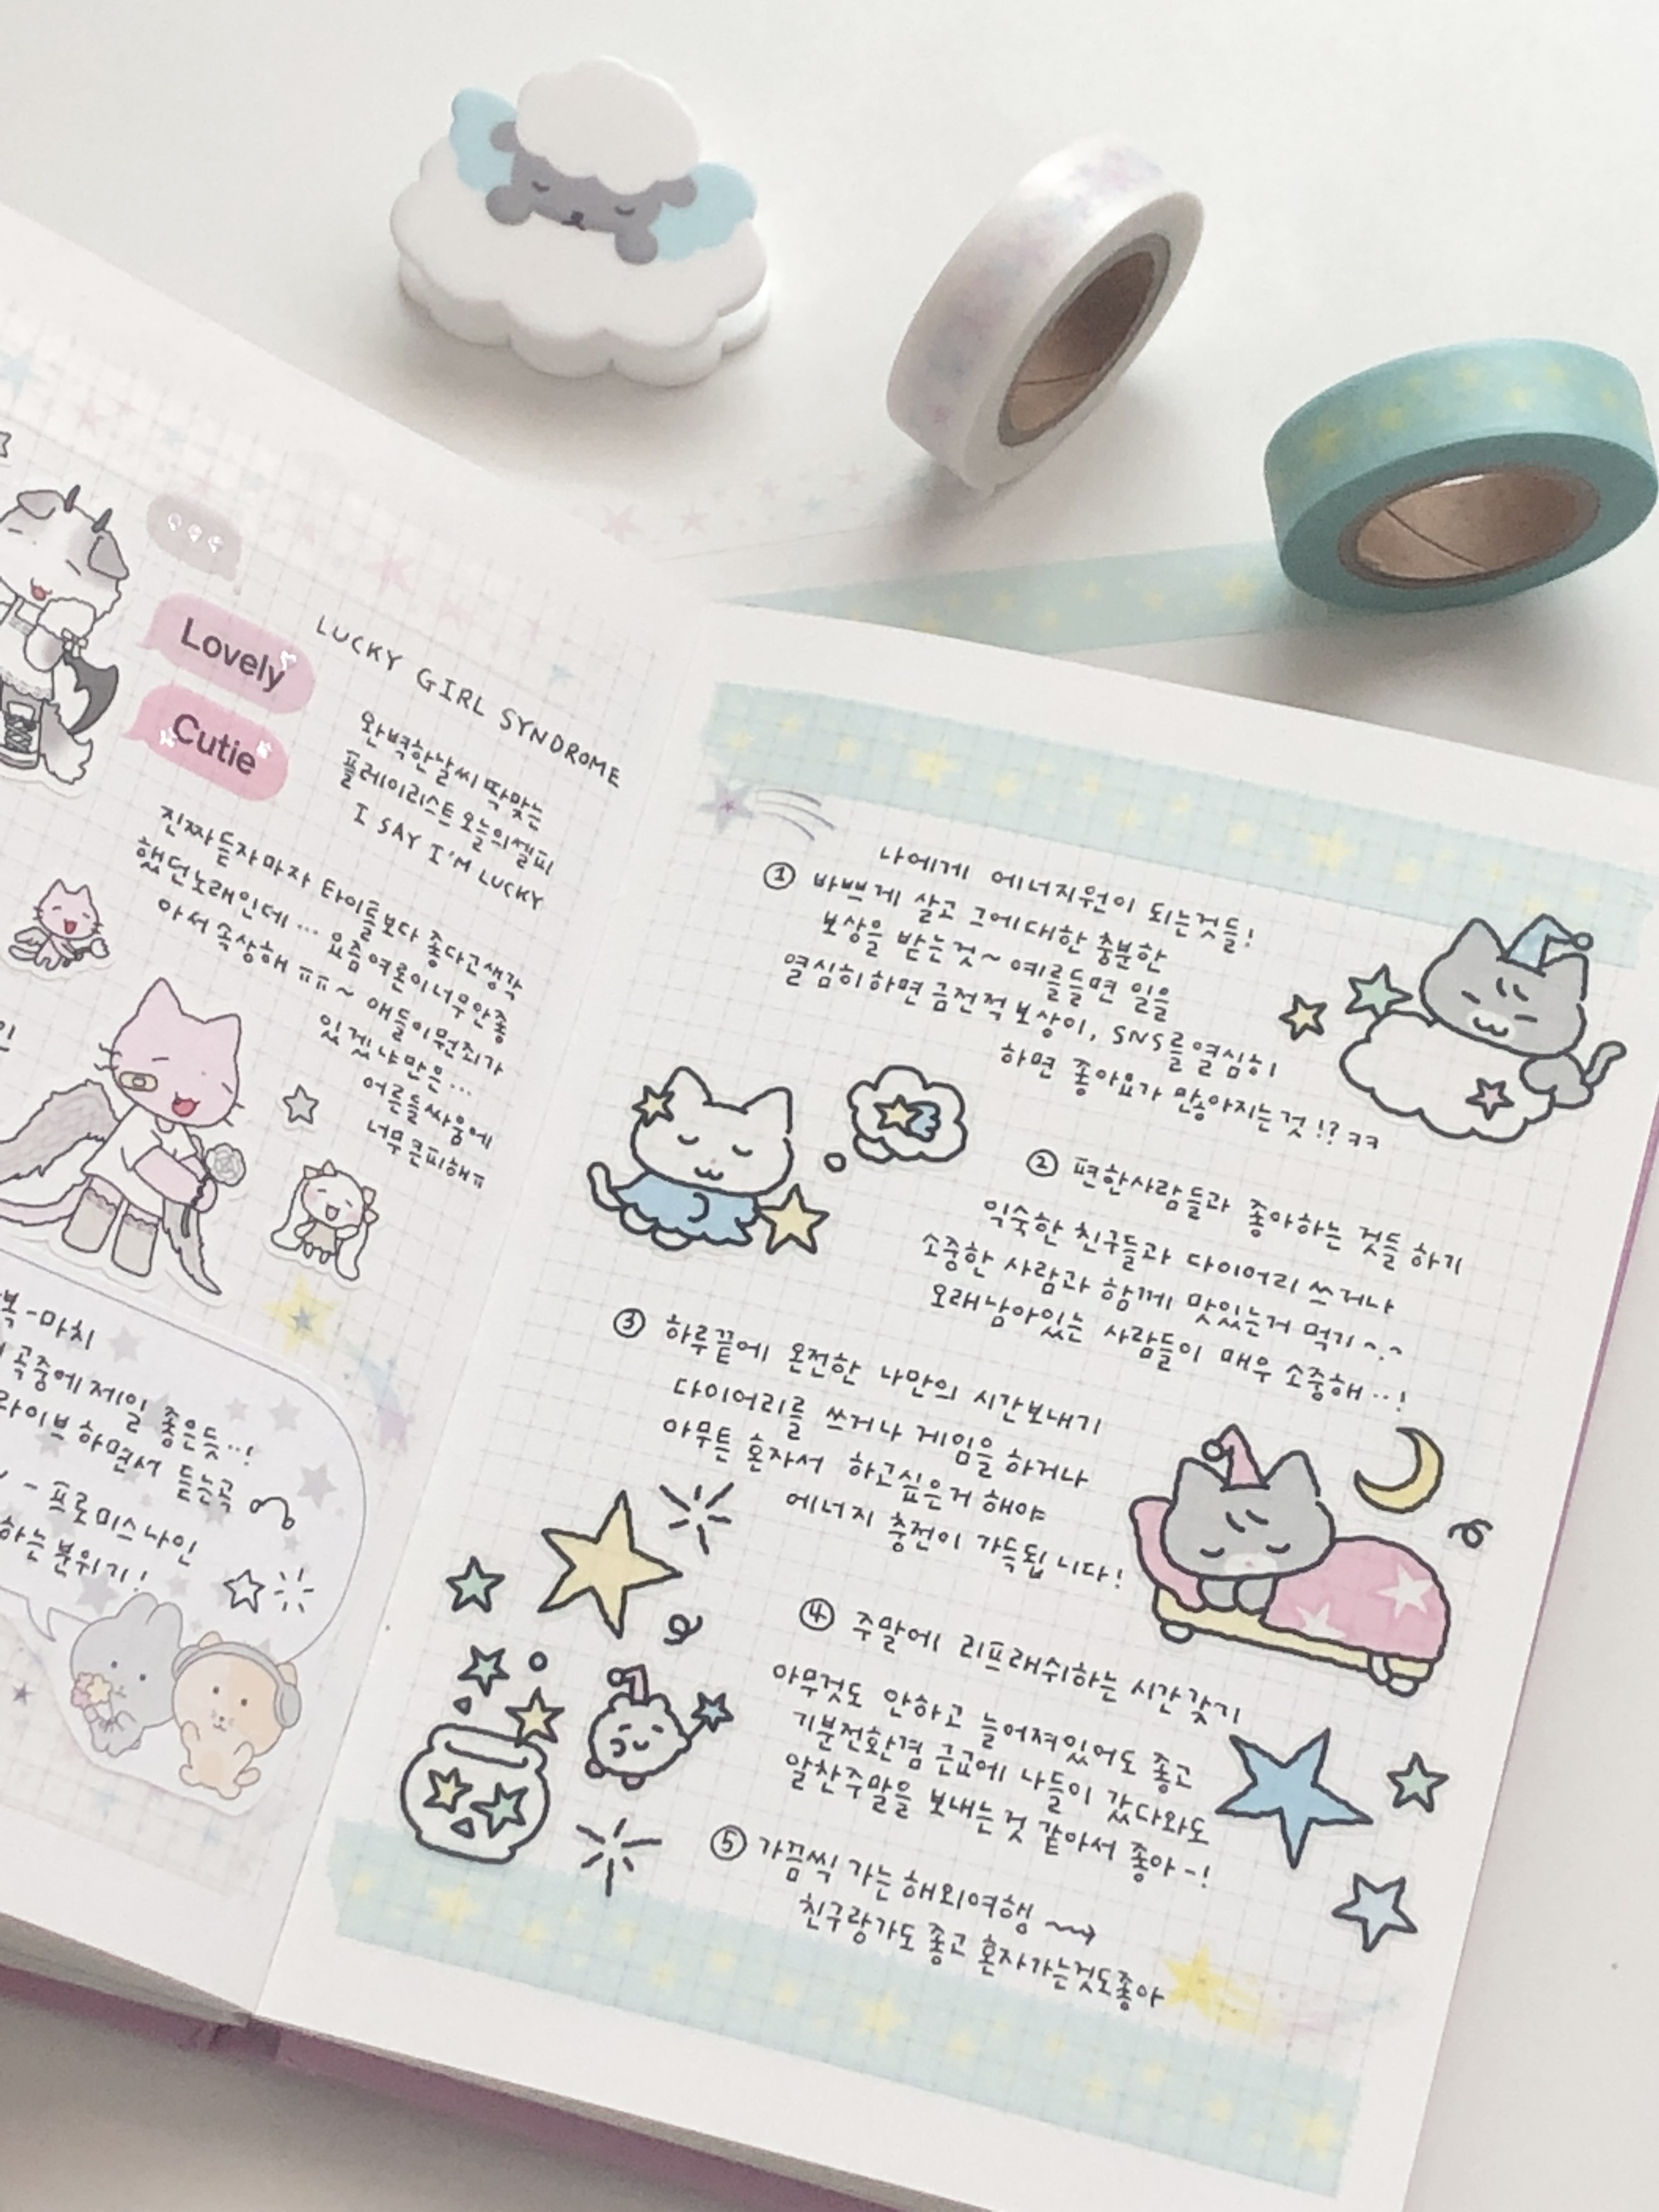 Lovely
Cutie
LUCKY GIRL SYNDROME
완벽한날씨 딱맞는
플레이리스트 오늘의셀피
I SAY I'M LUCKY
진짜듣자마자 타이틀보다 좋다고생각
했던노래인데… 요즘여론이너무안좋
아서 속상해 ㅠㅠ~ 애들이뭔죄가
있겠냐만은…
어른들싸움에
너무큰피해ㅠ
인
복-마치
곡중에제일 좋은듯…!
라이브 하면서 듣는곡
- 프로미스나인
하는 분위기!
나에게 에너지원이 되는것들!
① 바쁘게 살고 그에대한 충분한
보상을 받는것~ 예를들면 일을
열심히하면 금전적 보상이, SNS를열심히
하면 좋아요가 많아지는것!? ㅋㅋ
② 편한사람들과 좋아하는 것들 하기
익숙한 친구들과 다이어리 쓰거나
소중한 사람과 함께 맛있는거 먹기^.^
오래남아있는 사람들이 매우 소중해…!
③ 하루끝에 온전한 나만의 시간보내기
다이어리를 쓰거나 게임을 하거나
아무튼 혼자서 하고싶은거 해야
에너지 충전이 가득됩니다!
④ 주말에 리프래쉬하는 시간갖기
아무것도 안하고 늘어져있어도 좋고
기분전환겸 근교에 나들이 갔다와도
알찬주말을 보내는것 같아서 좋아-!
⑤ 가끔씩 가는 해외여행 ~→
친구랑가도 좋고 혼자가는것도좋아